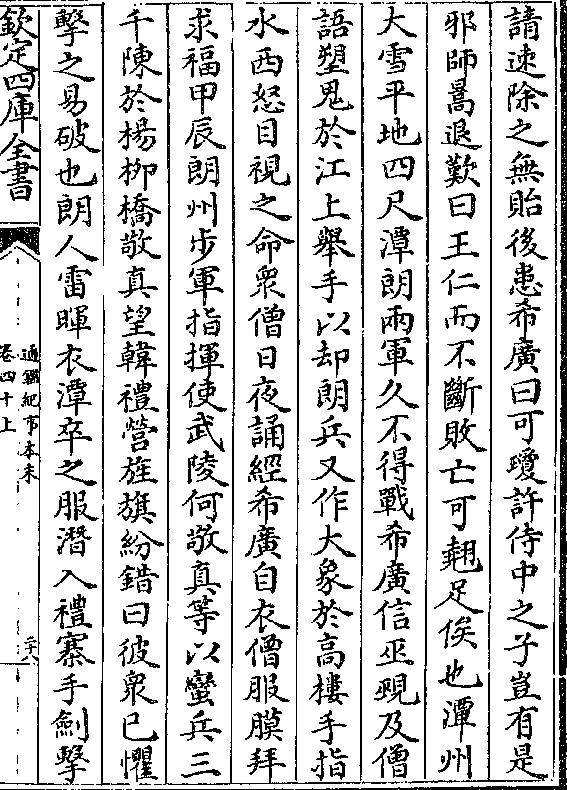 請速除之無貽後患希廣曰可瓊許侍中之子豈有是
邪師暠退歎曰王仁而不斷敗亡可翹足俟也潭州
大雪平地四尺潭朗兩軍久不得戰希廣信巫覡及僧
語塑鬼於江上舉手以却朗兵又作大象於高樓手指
水西怒目視之命衆僧日夜誦經希廣自衣僧服膜拜
求福甲辰朗州步軍指揮使武陵何敬真等以蠻兵三
千陳於楊柳橋敬真望韓禮營旌旗紛錯曰彼衆已懼
擊之易破也朗人雷暉衣潭卒之服潛入禮寨手劍擊
欽定四庫全書
通鑑紀事本末
卷四十上
二十八